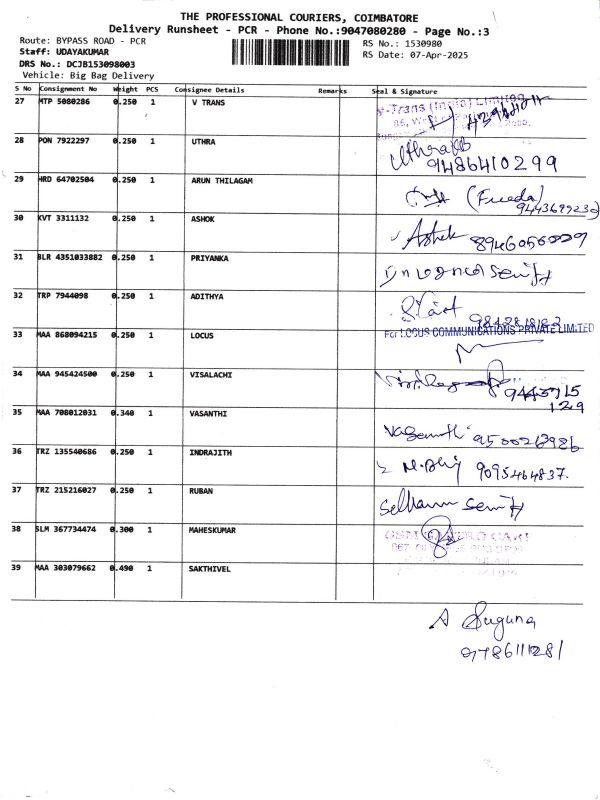 THE PROFESSIONAL COURIERS, COIMBATORE
Delivery Runsheet - PCR - Phone No.:9047080280 - Page No.:3
Route: BYPASS ROAD - PCR
RS No.: 1530980
Staff: UDAYAKUMAR
RS Date: 07-Apr-2025
DRS No.: DCJB153098003
Vehicle: Big Bag Delivery
S No Consignment No Weight PCS Consignee Details Remarks Seal & Signature
27 MTP 5080286 0.250 1 V TRANS
V-Trans (India) Limited
28 PON 7922297 0.250 1 UTHRA
Uthra
9486410299
29 HRD 64702504 0.250 1 ARUN THILAGAM
(Freeda)
30 KVT 3311132 0.250 1 ASHOK
Ashok
31 BLR 4351033882 0.250 1 PRIYANKA
32 TRP 7944098 0.250 1 ADITHYA
33 MAA 868094215 0.250 1 LOCUS
For LOCUS COMMUNICATIONS PRIVATE LIMITED
34 MAA 945424500 0.250 1 VISALACHI
35 MAA 708012031 0.340 1 VASANTHI
Vasanthi
36 TRZ 135540686 0.250 1 INDRAJITH
9095464837.
37 TRZ 215216027 0.250 1 RUBAN
38 SLM 367734474 0.300 1 MAHESKUMAR
39 MAA 303079662 0.490 1 SAKTHIVEL
A Suguna